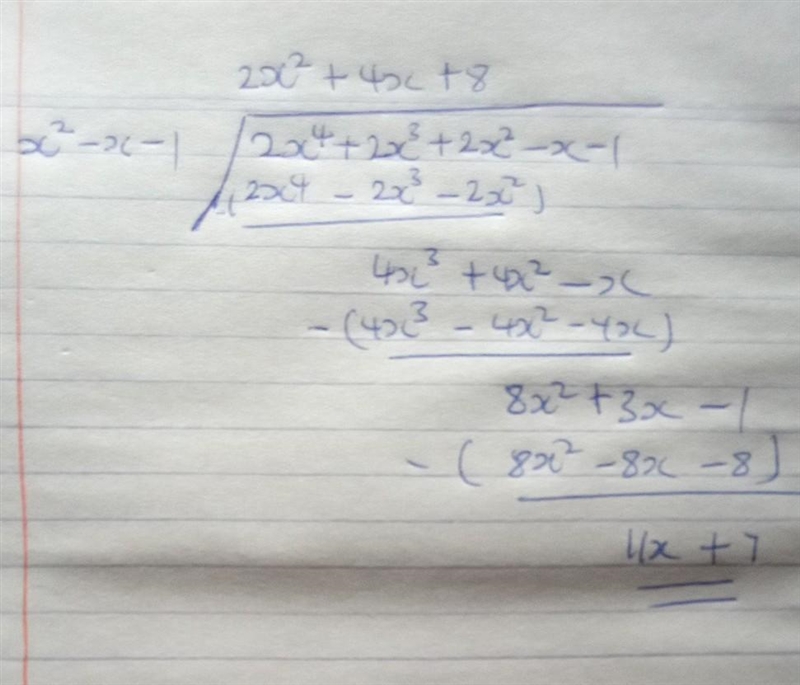 2x² + 4x + 8
x² - x - 1 √ 2x⁴ + 2x³ + 2x² - x - 1
(2x⁴ - 2x³ - 2x²)
4x³ + 4x² - x
- (4x³ - 4x² - 4x)
8x² + 3x - 1
- ( 8x² - 8x - 8)
11x + 7